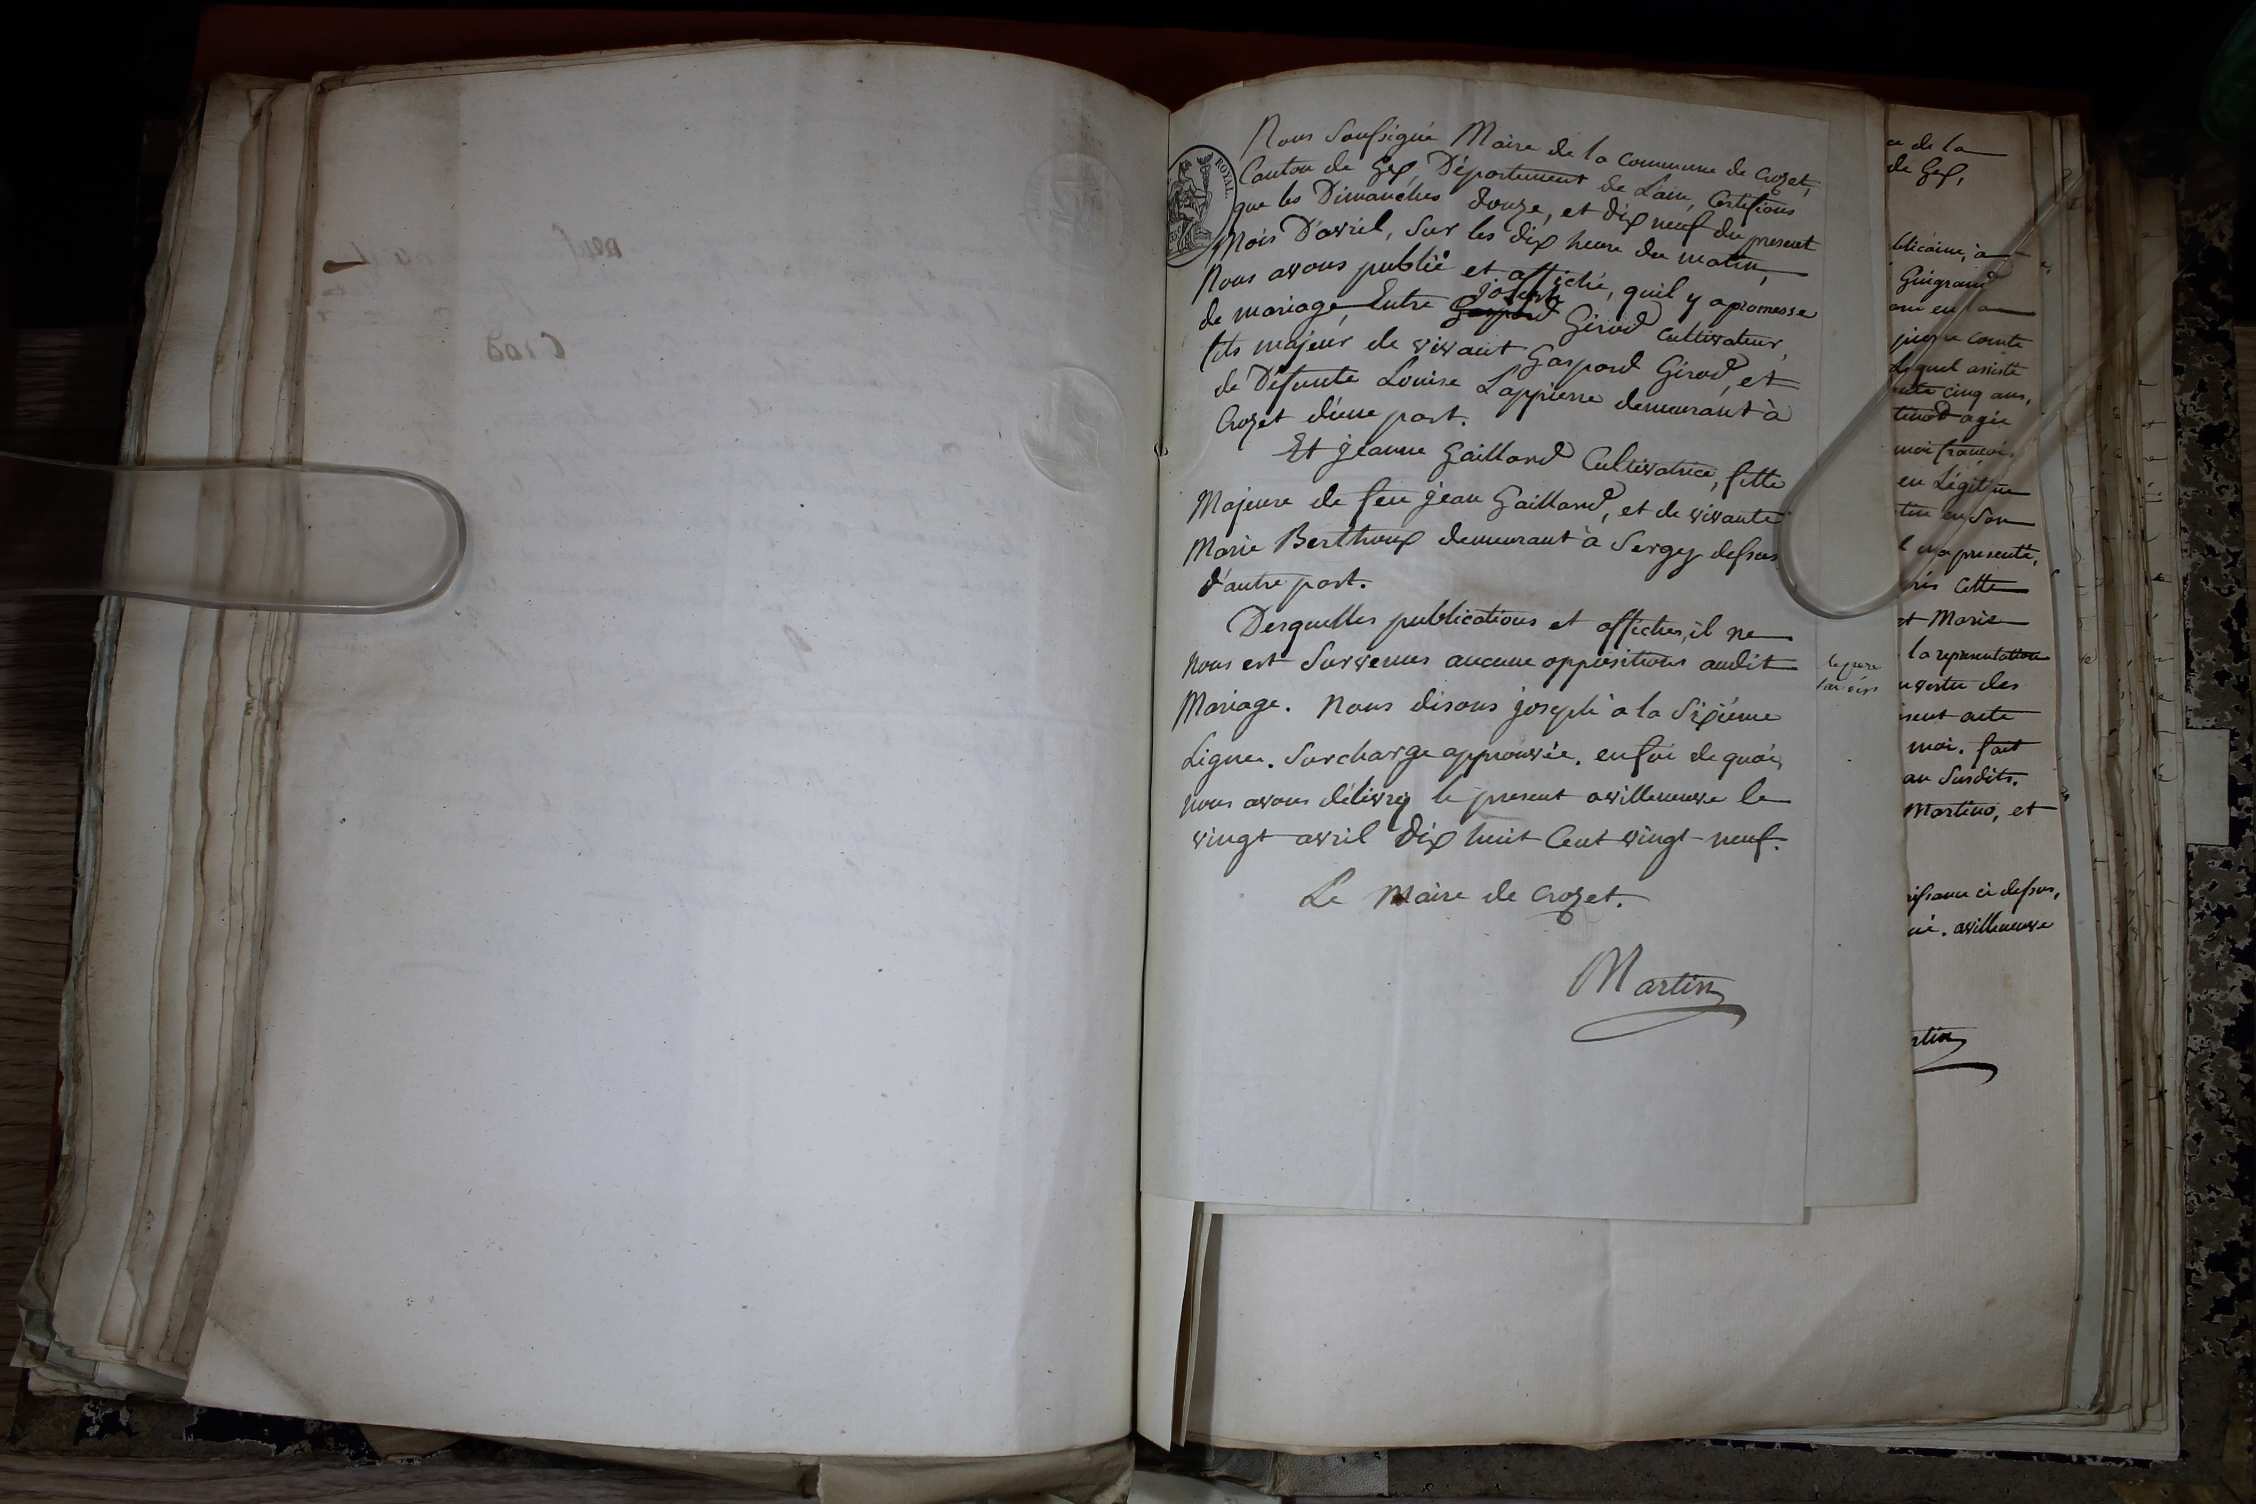 Nous Soussigné Maire de la commune de Crozet,
Canton de Gex, Département de L'ain, Certifions
que les Dimanches douze, et dix neuf du present
Mois D'avril, Sur les dix heure du matin,
Nous avons publié et affiché, quil y a promesse
joseph
de mariage, Entre Gaspard Girod cultivateur,
fils majeur de vivant Gaspard Girod, et
de Défunte Louise Lappierre demeurant à
Crozet d'une part.
Et jeanne Gaillard Cultivatrice, fille
Majeure de feu jean Gaillard, et de vivante
Marie Berthoux demeurant à Sergy dessus
d'autre part.
Desquelles publications et affiches, il ne
nous est Survenus aucune oppositions audit
Mariage. Nous disons joseph a la Sixième
Ligne. Surcharge approuvée. en foi de quoi,
nous avons délivré le present a villeneuve le
vingt avril Dix huit Cent vingt-neuf.
Le Maire de Crozet.
Martin
ROYAL
neuf
le pere
ce de la
de Gex,
blicaine, à
Guigrand
pierre comte
Lequel assisté
cinq ans,
agée
moi francoi
en Légitime
en Son
presenté,
cette
et Marie
la representation
vertu des
acte
moi. fait
an Susdits.
Martino, et
ci dessus,
a villeneuve